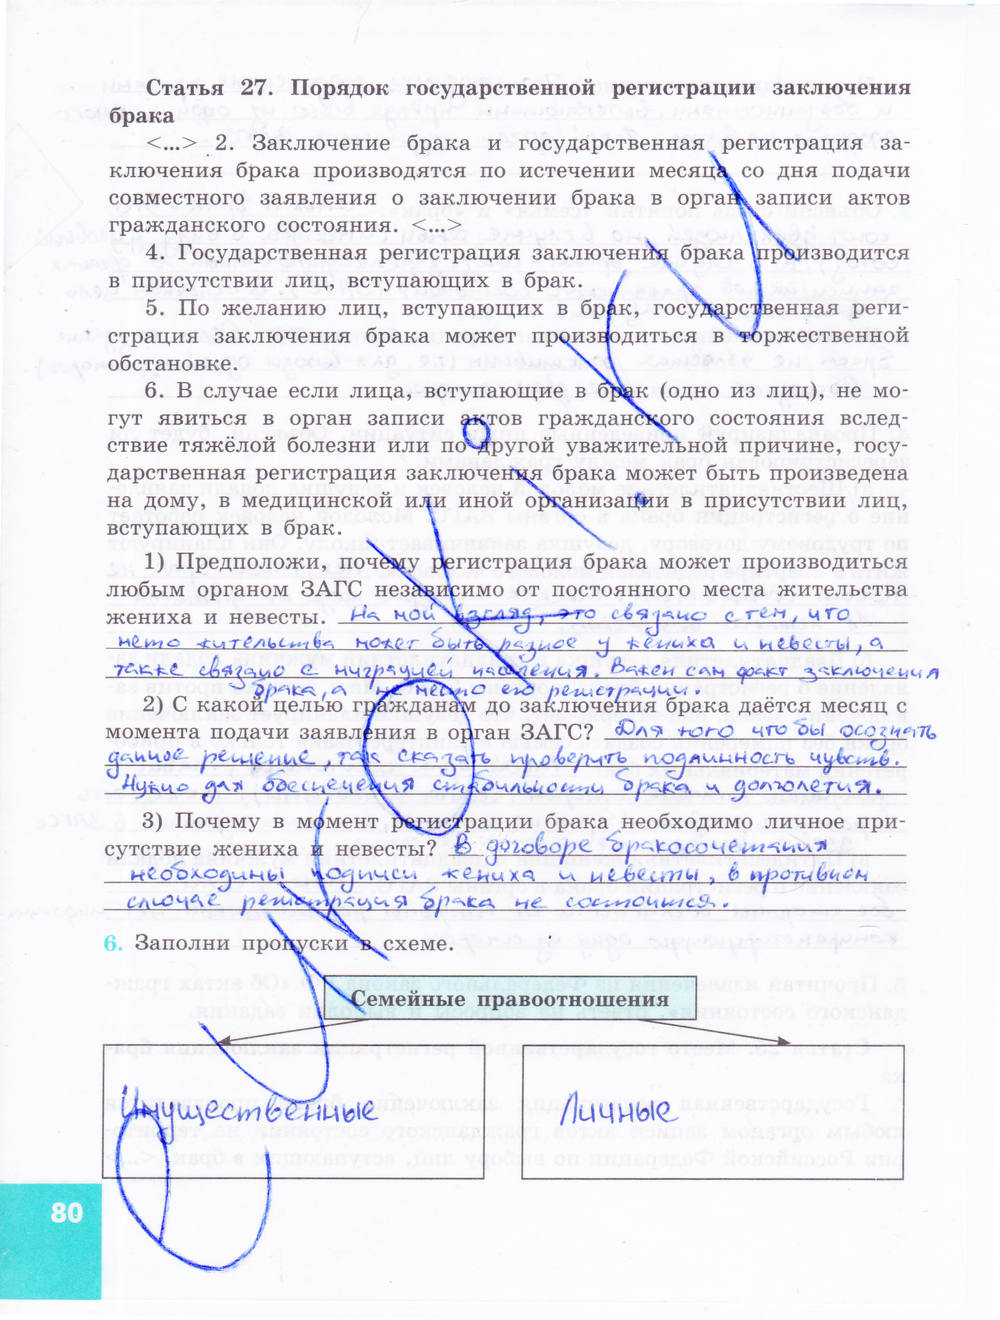 Статья 27. Порядок государственной регистрации заключения
брака
<...> 2. Заключение брака и государственная регистрация за-
ключения брака производятся по истечении месяца со дня подачи
совместного заявления о заключении брака в орган записи актов
гражданского состояния. <...>
4. Государственная регистрация заключения брака производится
в присутствии лиц, вступающих в брак.
5. По желанию лиц, вступающих в брак, государственная реги-
страция заключения брака может производиться в торжественной
обстановке.
6. В случае если лица, вступающие в брак (одно из лиц), не мо-
гут явиться в орган записи актов гражданского состояния вслед-
ствие тяжёлой болезни или по другой уважительной причине, госу-
дарственная регистрация заключения брака может быть произведена
на дому, в медицинской или иной организации в присутствии лиц,
вступающих в брак.
1) Предположи, почему регистрация брака может производиться
любым органом ЗАГС независимо от постоянного места жительства
жениха и невесты. На мой взгляд, это связано с тем, что
место жительства может быть разное у жениха и невесты, а
также связано с миграцией населения. Важен сам факт заключения
брака, а не место его регистрации.
2) С какой целью гражданам до заключения брака даётся месяц с
момента подачи заявления в орган ЗАГС? Для того что бы осознать
данное решение, так сказать проверить подлинность чувств.
Нужно для обеспечения стабильности брака и долголетия.
3) Почему в момент регистрации брака необходимо личное при-
сутствие жениха и невесты? В договоре бракосочетания
необходимы подписи жениха и невесты, в противном
случае регистрация брака не состоится.
6. Заполни пропуски в схеме.
Семейные правоотношения
Имущественные
Личные
80